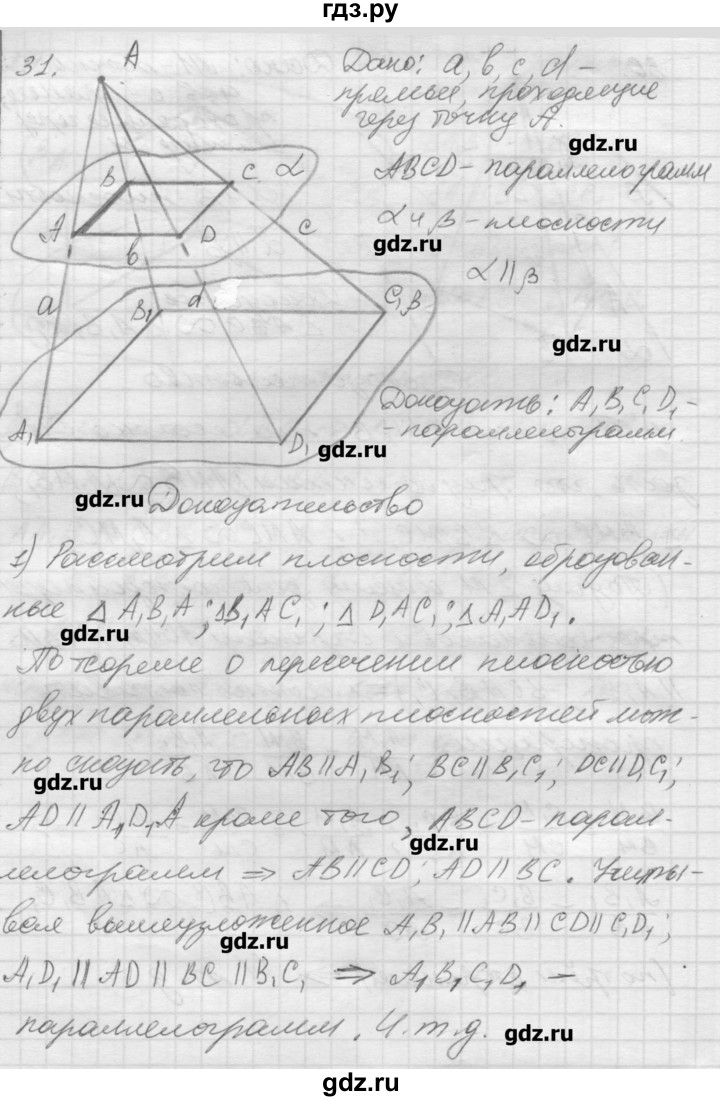 гдз.ру
31.
A
Дано: a, b, c, d -
прямые, проходящие
через точку А.
gdz.ru
B
C
α
ABCD - параллелограмм
A
D
b
c
α и β - плоскости
gdz.ru
α || β
a
B₁
d
C₁ β
gdz.ru
Доказать: A₁B₁C₁D₁ -
- параллелограмм.
A₁
D₁
gdz.ru
gdz.ru
Доказательство
gdz.ru
1) Рассмотрим плоскости, образован-
ные Δ A₁B₁A; ΔB₁AC₁; Δ D₁AC₁; Δ A₁AD₁.
gdz.ru
По теореме о пересечении плоскостью
двух параллельных плоскостей мож-
но сказать, что AB || A₁B₁; BC || B₁C₁; DC || D₁C₁;
gdz.ru
AD || A₁D₁A кроме того, ABCD - парал-
gdz.ru
лелограмм ⇒ AB || CD; AD || BC. Учиты-
вая вышеизложенное A₁B₁ || AB || CD || C₁D₁;
gdz.ru
A₁D₁ || AD || BC || B₁C₁ ⇒ A₁B₁C₁D₁ -
параллелограмм. Ч.т.д.
gdz.ru
gdz.ru